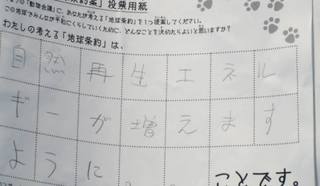 投票用紙
「動物会議」に、あなたが考える「地球条約」を1つ提案してください。
この地球でみんなが平和にくらしていくために、どんなことを決めたらよいと思いますか?
わたしの考える「地球条約」は、
自然再生エネル
ギーが増えます
ように
ことです。